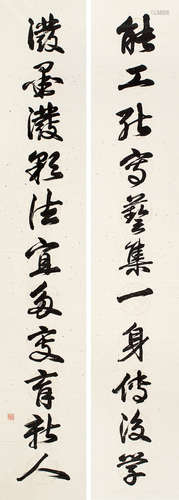 能工能写艺集一身传后学
泼墨泼彩法宜多变育新人